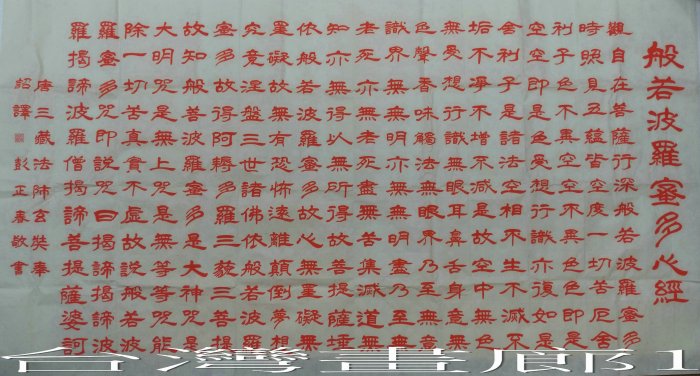 般若波羅蜜多心經
觀自在菩薩行深般若波羅蜜多
時照見五蘊皆空度一切苦厄舍
利子色不異空空不異色色即是
空空即是色受想行識亦復如是
舍利子是諸法空相不生不滅不
垢不淨不增不減是故空中無色
無受想行識無眼耳鼻舌身意無
色聲香味觸法無眼界乃至無意
識界無無明亦無無明盡乃至無
老死亦無老死盡無苦集滅道無
知亦無得以無所得故菩提薩埵
依般若波羅蜜多故心無罣礙無
罣礙故無有恐怖遠離顛倒夢想
究竟涅盤三世諸佛依般若波羅
蜜多故得阿耨多羅三藐三菩提
故知般若波羅蜜多是大神咒是
大明咒是無上咒是無等等咒能
除一切苦真實不虛故說般若波
羅蜜多咒即說咒曰揭諦揭諦波
羅揭諦波羅僧揭諦菩提薩婆訶
唐三藏法師玄奘奉
詔譯 彭正春敬書
台灣書廊B1